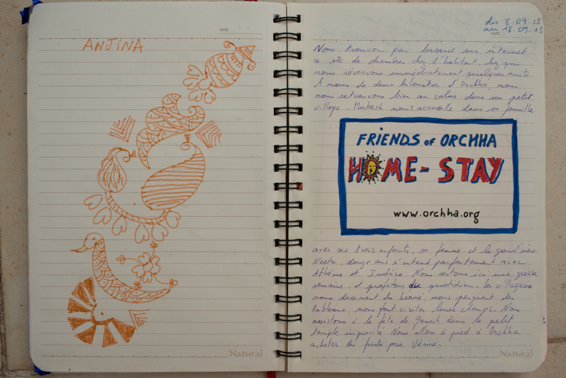 ANJINA
Natural
du 8.09.13
au 18.09.13
Nous trouvons par hasard sur internet
ce site de chambres chez l'habitant
nous réservons immédiatement quelques nuits.
A moins de deux kilomètres d'Orchha, nous
nous retrouvons bien au calme dans un petit
village. Mukesh nous accueille dans sa famille
FRIENDS OF ORCHHA
HOME-STAY
www.orchha.org
avec ses trois enfants, sa femme et la grand'mère.
ans s'entend parfaitement avec
et Nous restons ici une grosse
semaine et profitons du quotidien : les villageois
nous dessinent du henné, nous peignent les
nous font visiter leurs temples. Nous
assistons à la fête de Ganesh dans le petit
temple improvisé. Nous allons à pied à Orchha
acheter des fruits pour
Natural